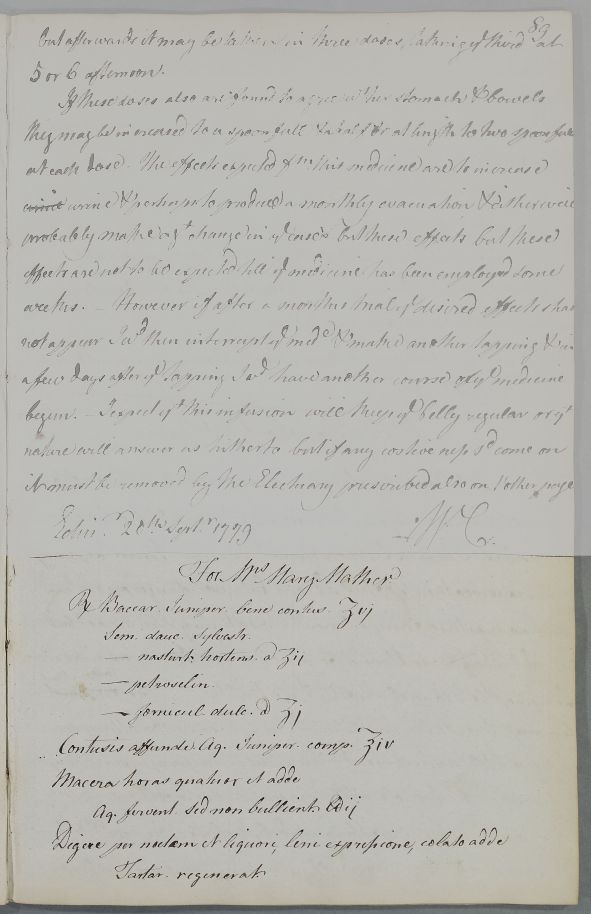 89
but afterwards it may be taken in three doses, taking yͤ third at
5 or 6 afternoon.
If these doses also are found to agree wͭ her stomach & bowels
they may be increased to a spoonfull & a half & at length to two spoonfulls
at each dose. The effects expected fͫ this medicine are to increase
urine & perhaps to produce a monthly evacuation & otherwise
probably make a gͭ change in yͤ case but these effects but these
effects are not to be expected till yͤ medicine has been employed some
weeks. – However if after a months trial yͤ desired effects shall
not appear I wͩ then interrupt yͤ medͤ & make another tapping & in
a few days after yͤ tapping I wͩ have another course of yͤ medicine
begun. – I expect yͭ this infusion will keep yͤ belly regular or yͭ
nature will answer as hitherto but if any costiveness sͩ come on
it must be removed by the Electuary prescribed also on t'other page
Edinͬ. 20th Septͬ 1779 W C
For Mrs Mary Mather
℞ Baccar. Juniper. bene contus. ʒvj
Sem. dauc. sylvestr.
— nasturt. hortens. a ʒij
— petroselin.
— foenicul. dulc. a ʒj
Contusis affunde Aq. Juniper. comp. ʒiv
Macera horas quatuor et adde
Aq. fervent. sed non bullient. ℔ij
Digere per noctem et liquori, leni expressione, colato adde
Tartar. regenerat.